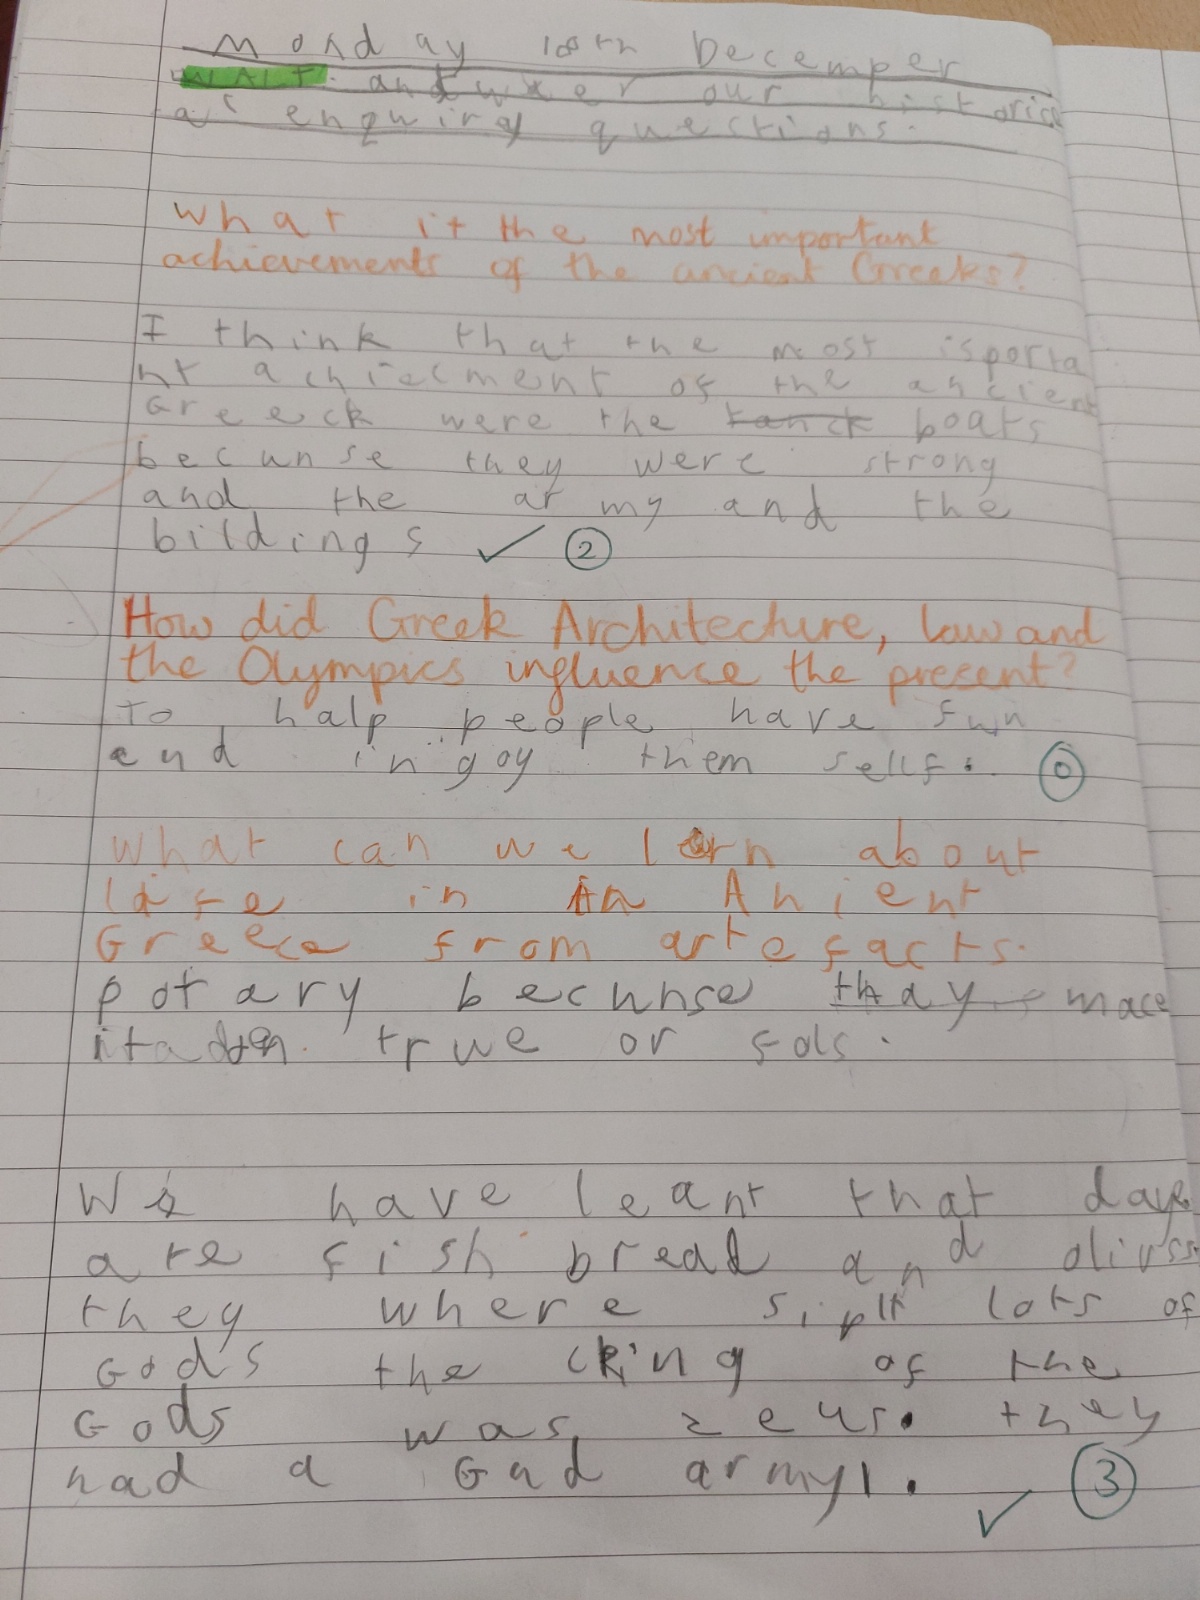 Monday 10th Decemper
WALT: andwxer our historic
al enquiry questions.
What it the most important
achievements of the ancient Greeks?
I think that the most isporta
nt achiecment of the ancient
Greeck were the boats
becunse they were strong
and the army and the
bildings ✓ 2
How did Greek Architecture, law and
the Olympics influence the present?
To halp people have fun
and ingoy them sellf. 0
What can we lern about
life in An Anient
Greece from artefacts.
potary becunse thay mace
true or fols.
We have leant that
are fish bread and olivss
they where lots of
Gods the cking of the
Gods was zeus. they
had a Gud army. ✓ 3